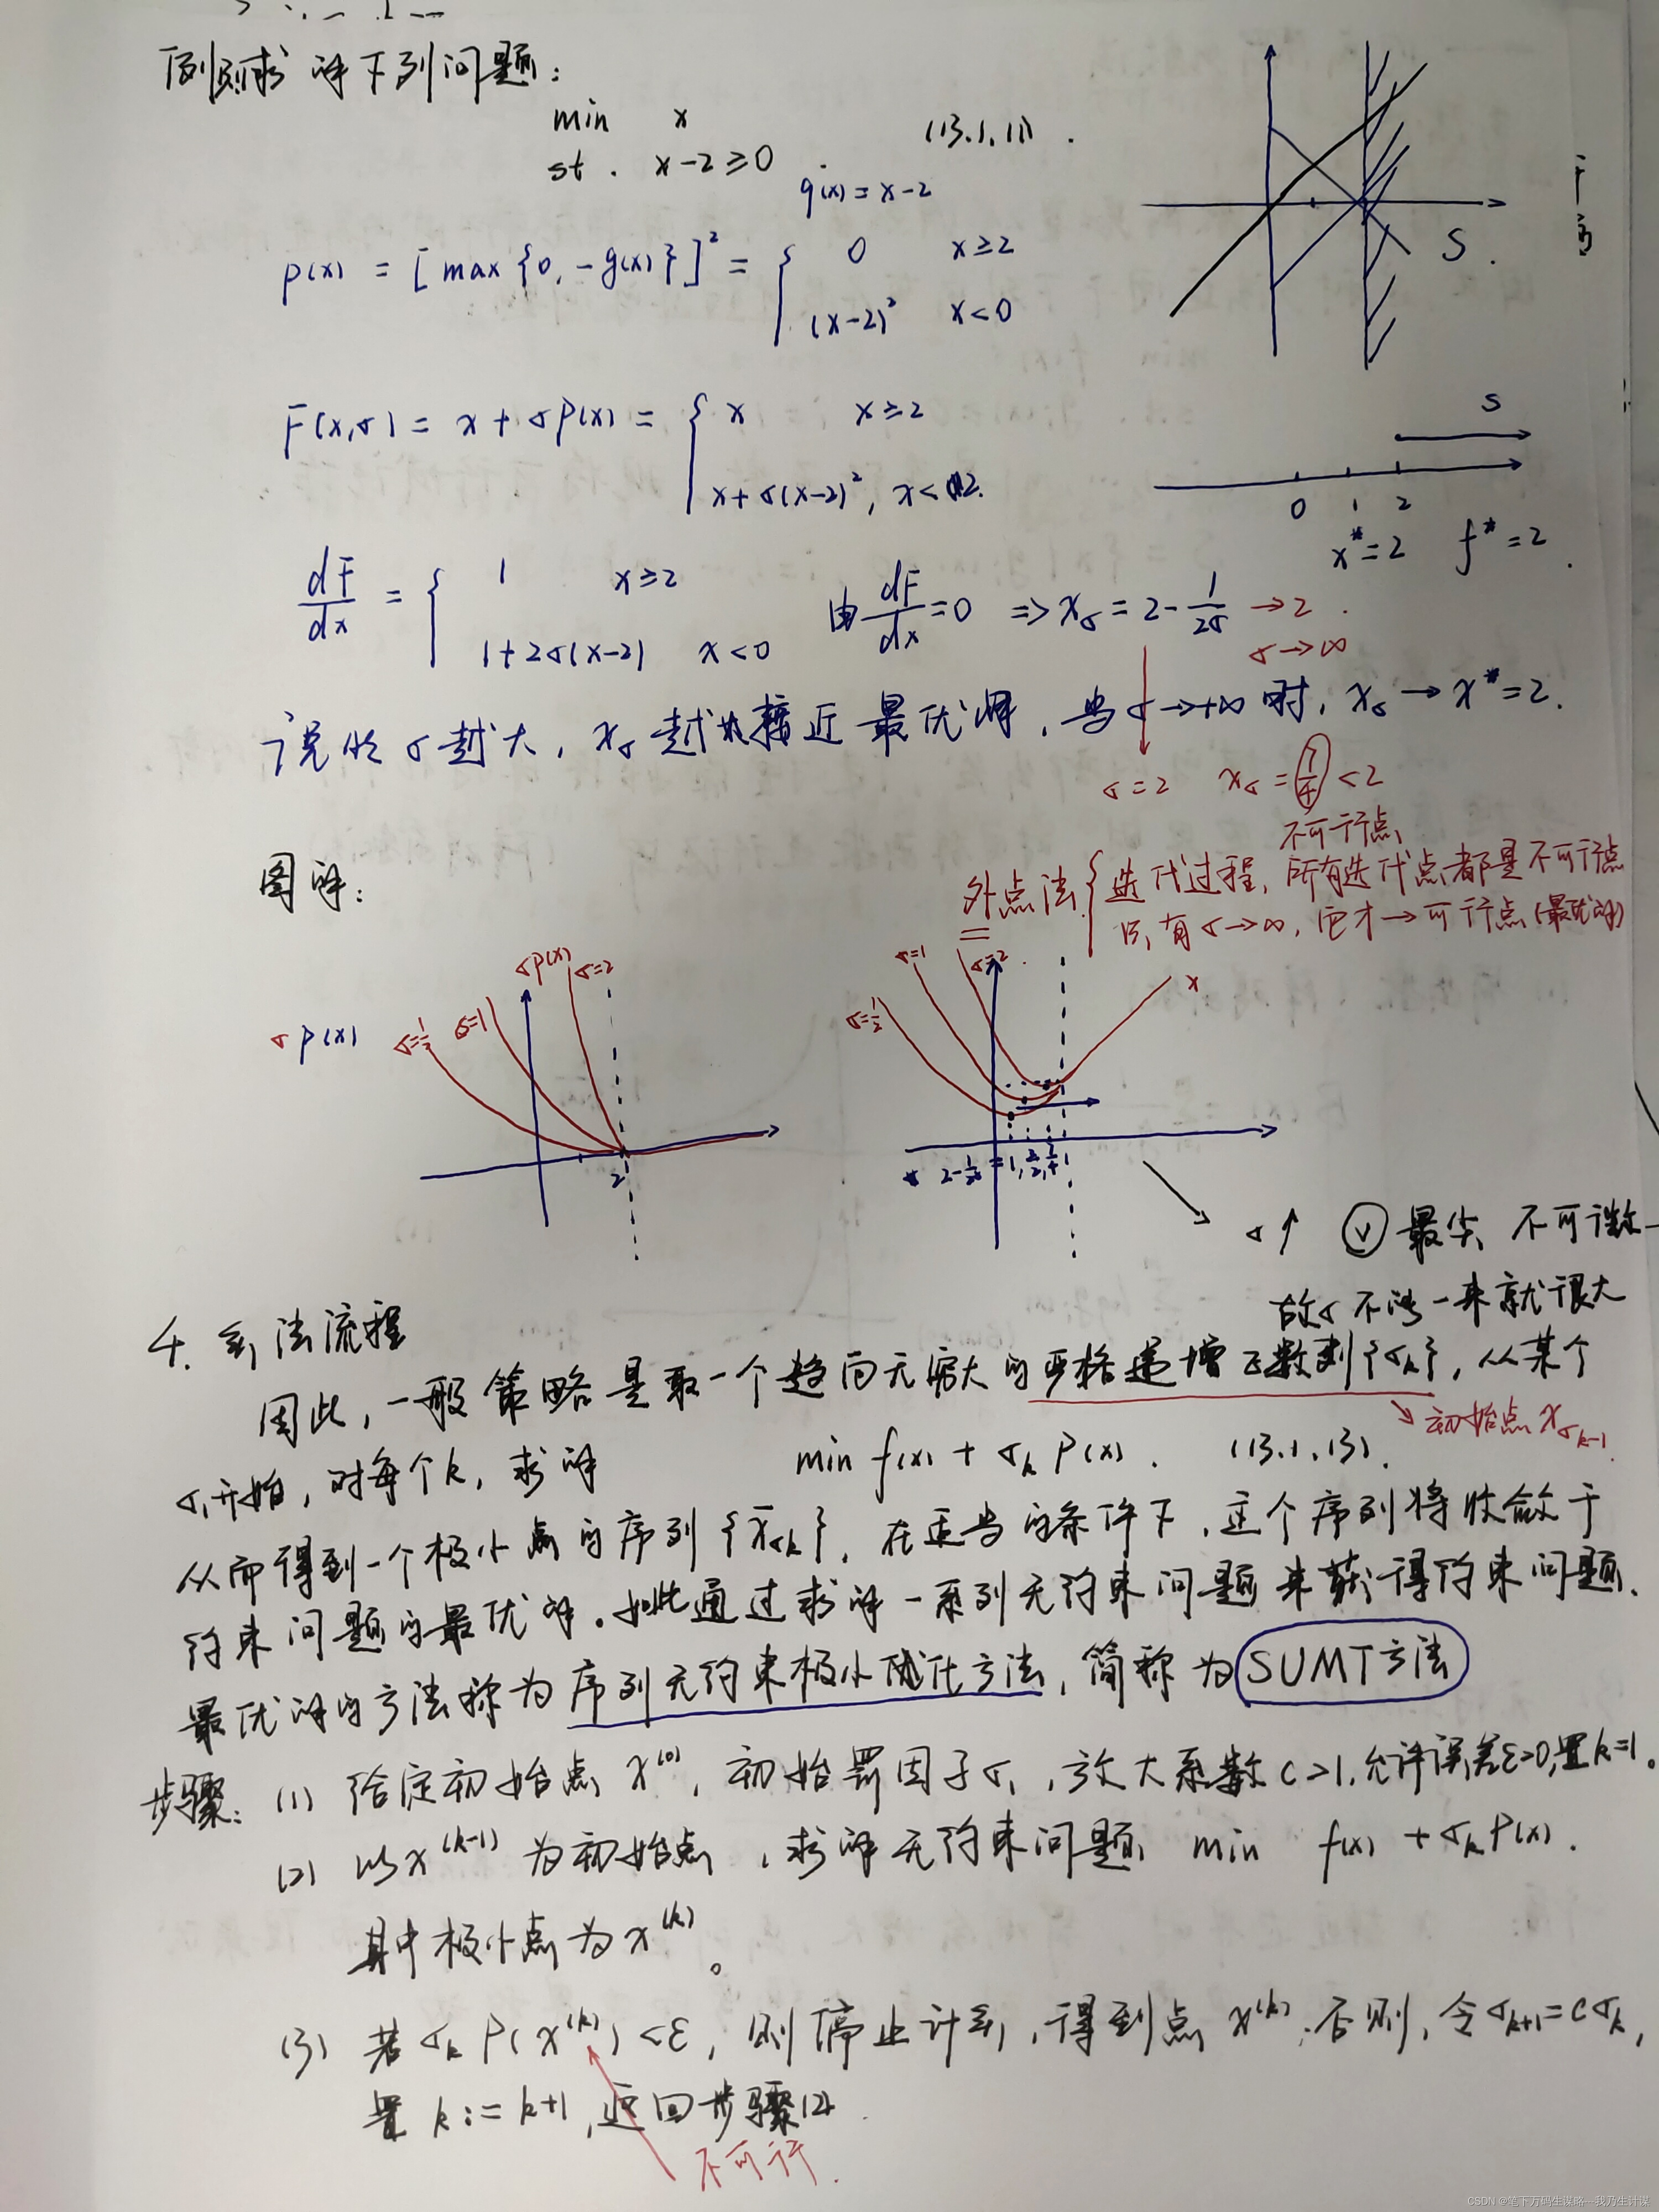 例 求解下列问题:
min x
s.t. x-2≥0. (13.1.11).
g(x)=x-2
S.
P(x) = [max{0, -g(x)}]² = { 0 x≥2
(x-2)² x<0
F(x,σ) = x+σP(x) = { x x≥2
x+σ(x-2)², x<2.
S
0 1 2
x*=2 f*=2.
dF/dx = { 1 x≥2
1+2σ(x-2) x<0
由 dF/dx=0 ⇒ xσ = 2-1/2σ →2.
σ→∞
说明σ越大, xσ越接近最优解, 当σ→+∞时, xσ→x*=2.
σ=2 xσ=7/4<2
不可行点
图解:
外点法 { 迭代过程, 所有迭代点都是不可行点
只有σ→∞, 它才→可行点(最优解)
σP(x)
σ=1/2 σ=1 σP(x) σ=2
2
σ=1/2 σ=1 σ=2 x
2-1/2σ =1, 3/2, 7/4
σ↑ Ⓥ 最尖, 不可微
故σ不能一来就很大
4. 算法流程
因此, 一般策略是取一个趋向无穷大的严格递增正数列{σk}, 从某个
初始点xσk-1
σ1开始, 对每个k, 求解 min f(x)+σkP(x). (13.1.13).
从而得到一个极小点的序列{x̄σk}, 在适当的条件下, 这个序列将收敛于
约束问题的最优解。如此通过求解一系列无约束问题来获得约束问题
最优解的方法称为序列无约束极小化方法, 简称为SUMT方法
步骤: (1) 给定初始点x⁽⁰⁾, 初始罚因子σ1, 放大系数c>1, 允许误差ε>0, 置k=1。
(2) 以x⁽ᵏ⁻¹⁾为初始点, 求解无约束问题 min f(x)+σkP(x).
其中极小点为x⁽ᵏ⁾。
(3) 若σkP(x⁽ᵏ⁾)<ε, 则停止计算, 得到点x⁽ᵏ⁾; 否则, 令σk+1=cσk,
置k:=k+1, 返回步骤(2).
不可行.
CSDN @笔下万码生谋略---我乃生计谋